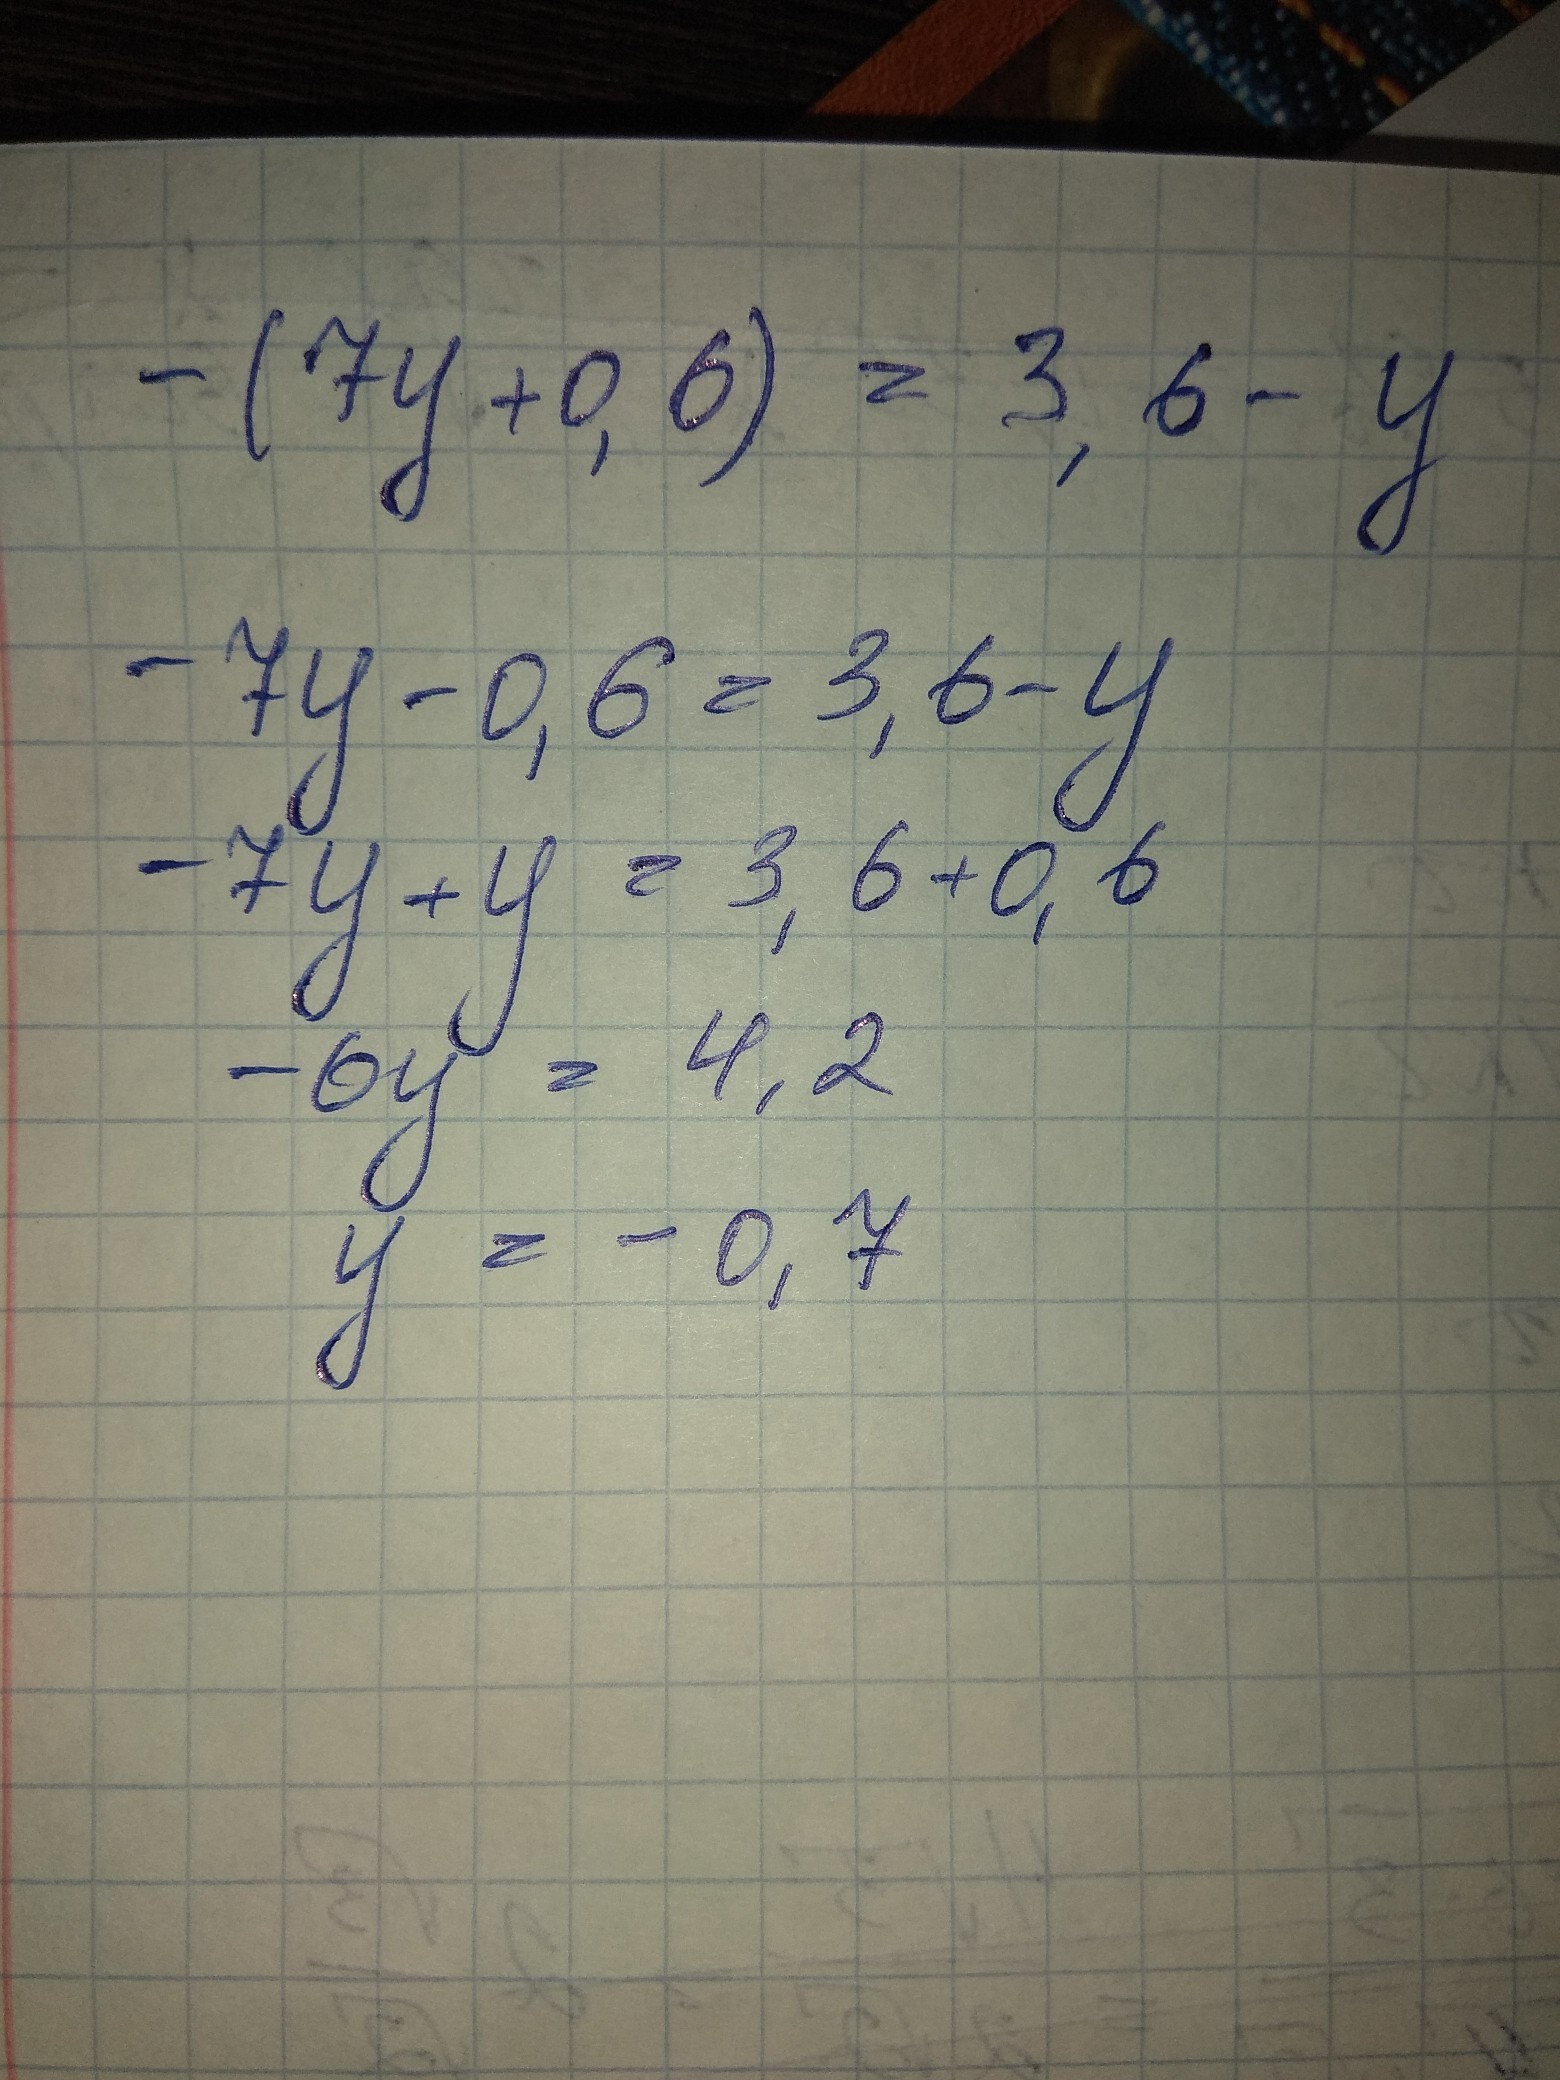 -(7y+0,6) = 3,6-y
-7y-0,6=3,6-y
-7y+y=3,6+0,6
-6y = 4,2
y = -0,7